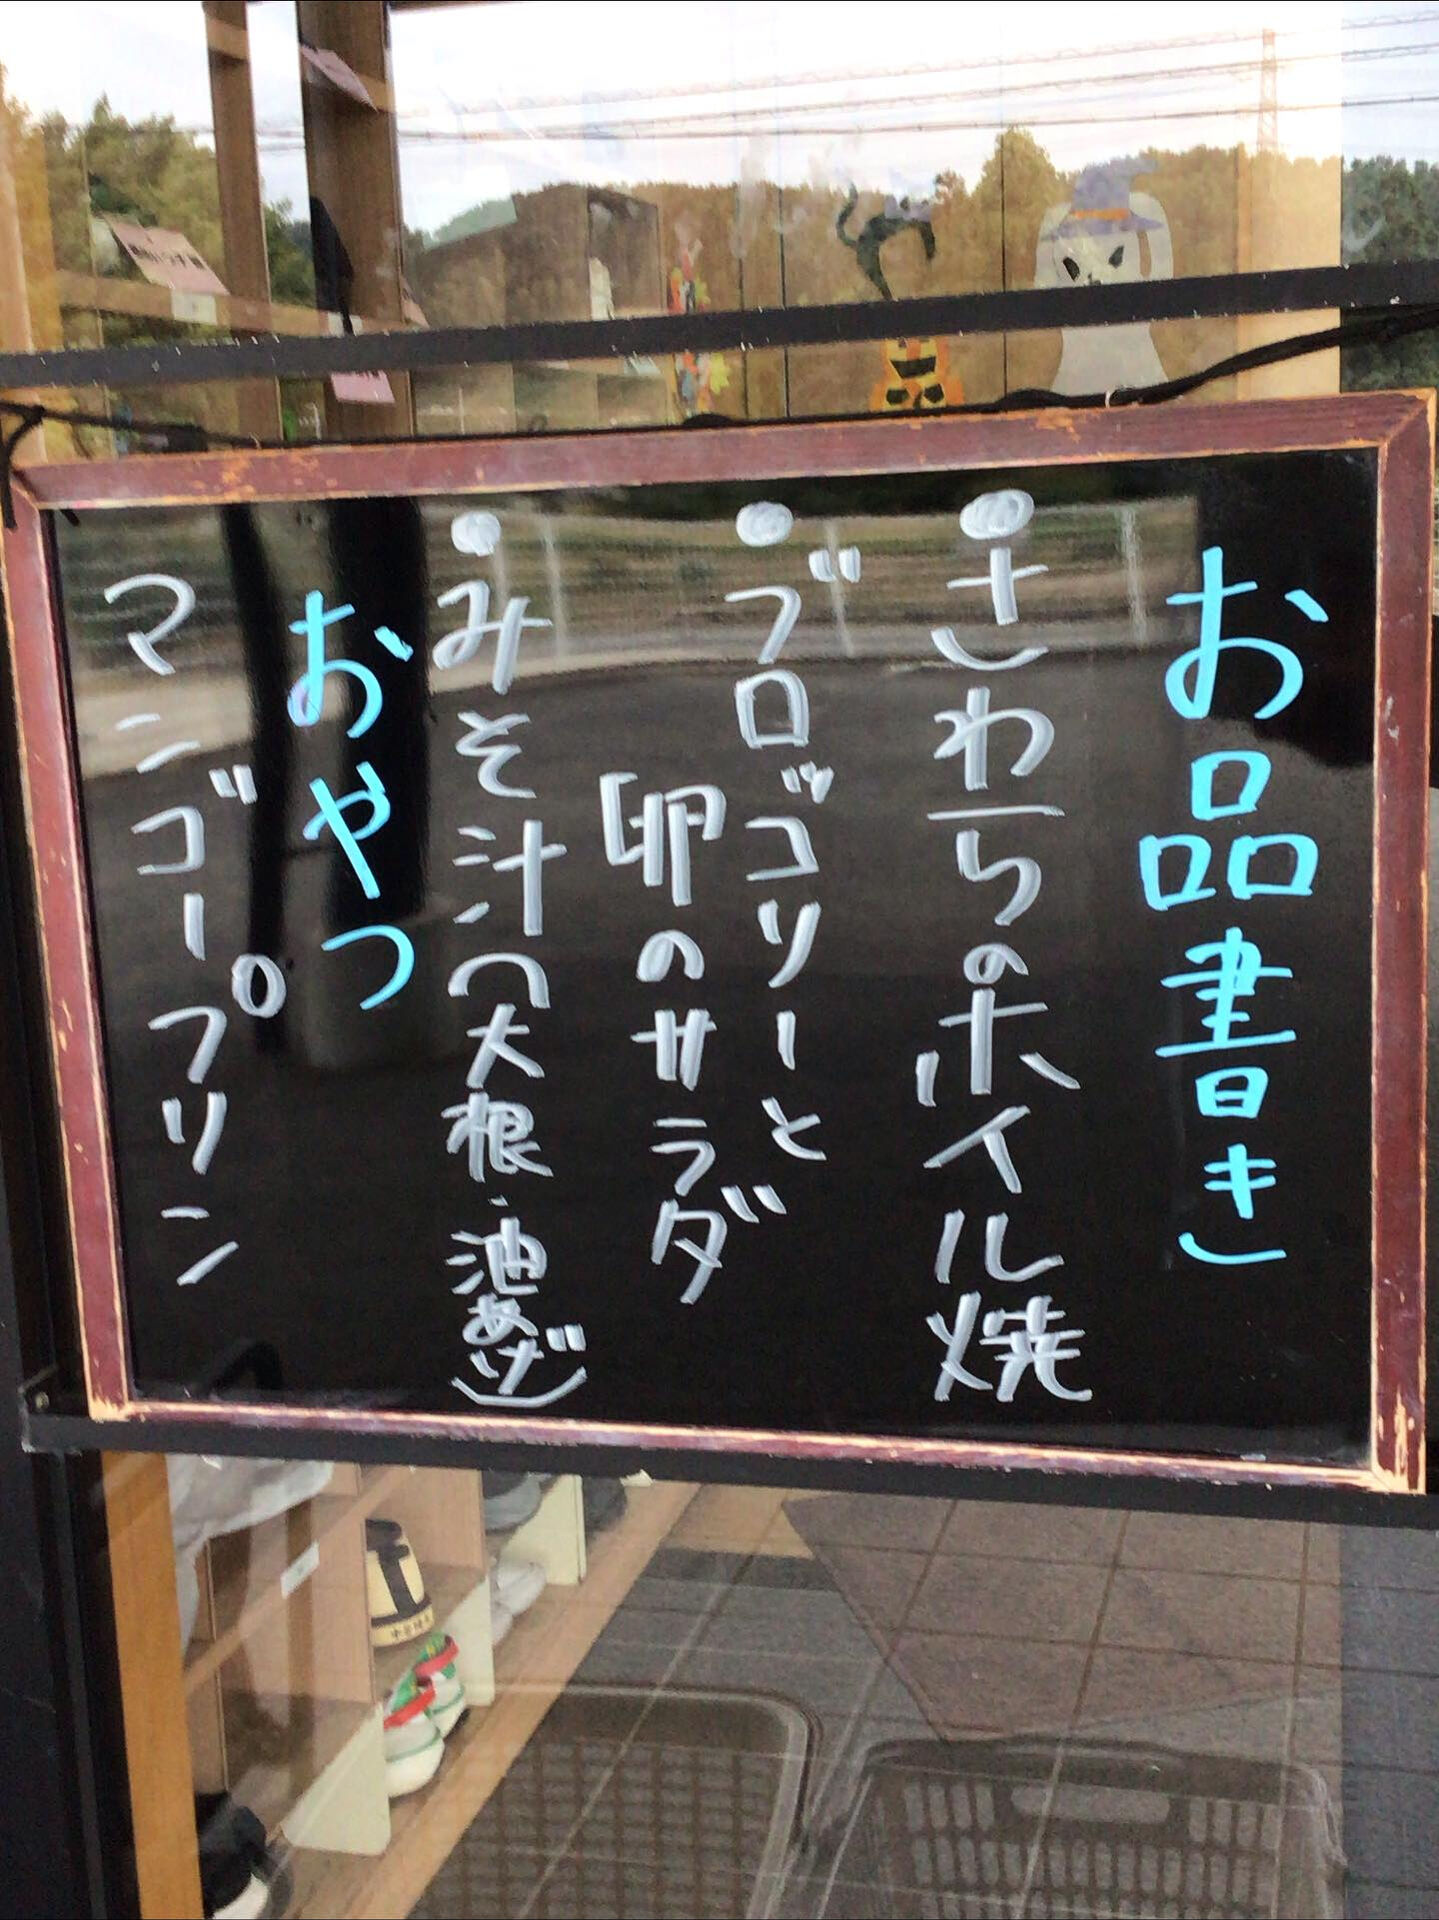 お品書き
●さわらのホイル焼
●ブロッコリーと
卵のサラダ
●みそ汁(大根・油あげ)
おやつ
マンゴープリン